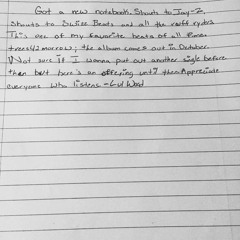 Got a new notebook. Shouts to Jay-Z,
Shouts to Swizz Beats and all the ruff ryders
This one of my favorite beats of all time.
trees42morrow; the album comes out in October.
Not sure if I wanna put out another single before
then but here's an offering until then. Appreciate
everyone who listens -Lul Wood